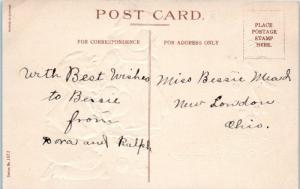 POST CARD.
FOR CORRESPONDENCE
FOR ADDRESS ONLY
PLACE
POSTAGE
STAMP
HERE.
With Best Wishes
to Bessie
from
Dora and Ralph
Miss Bessie Mead
New London
Ohio.